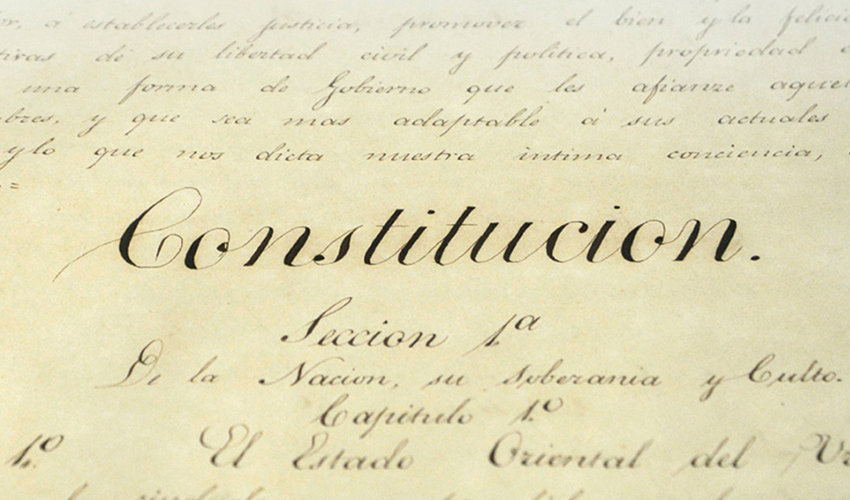 or, á establecerles justicia, promover el bien y la felici
tivas de su libertad civil y politica, propriedad
una forma de Gobierno que les afianze aque
bres, y que sea mas adaptable á sus actuales
ylo que nos dicta nuestra intima conciencia,
=
Constitucion.
Seccion 1.ª
De la Nacion, su soberania y Culto.
Capitulo 1.º
1.º El Estado Oriental del Ur